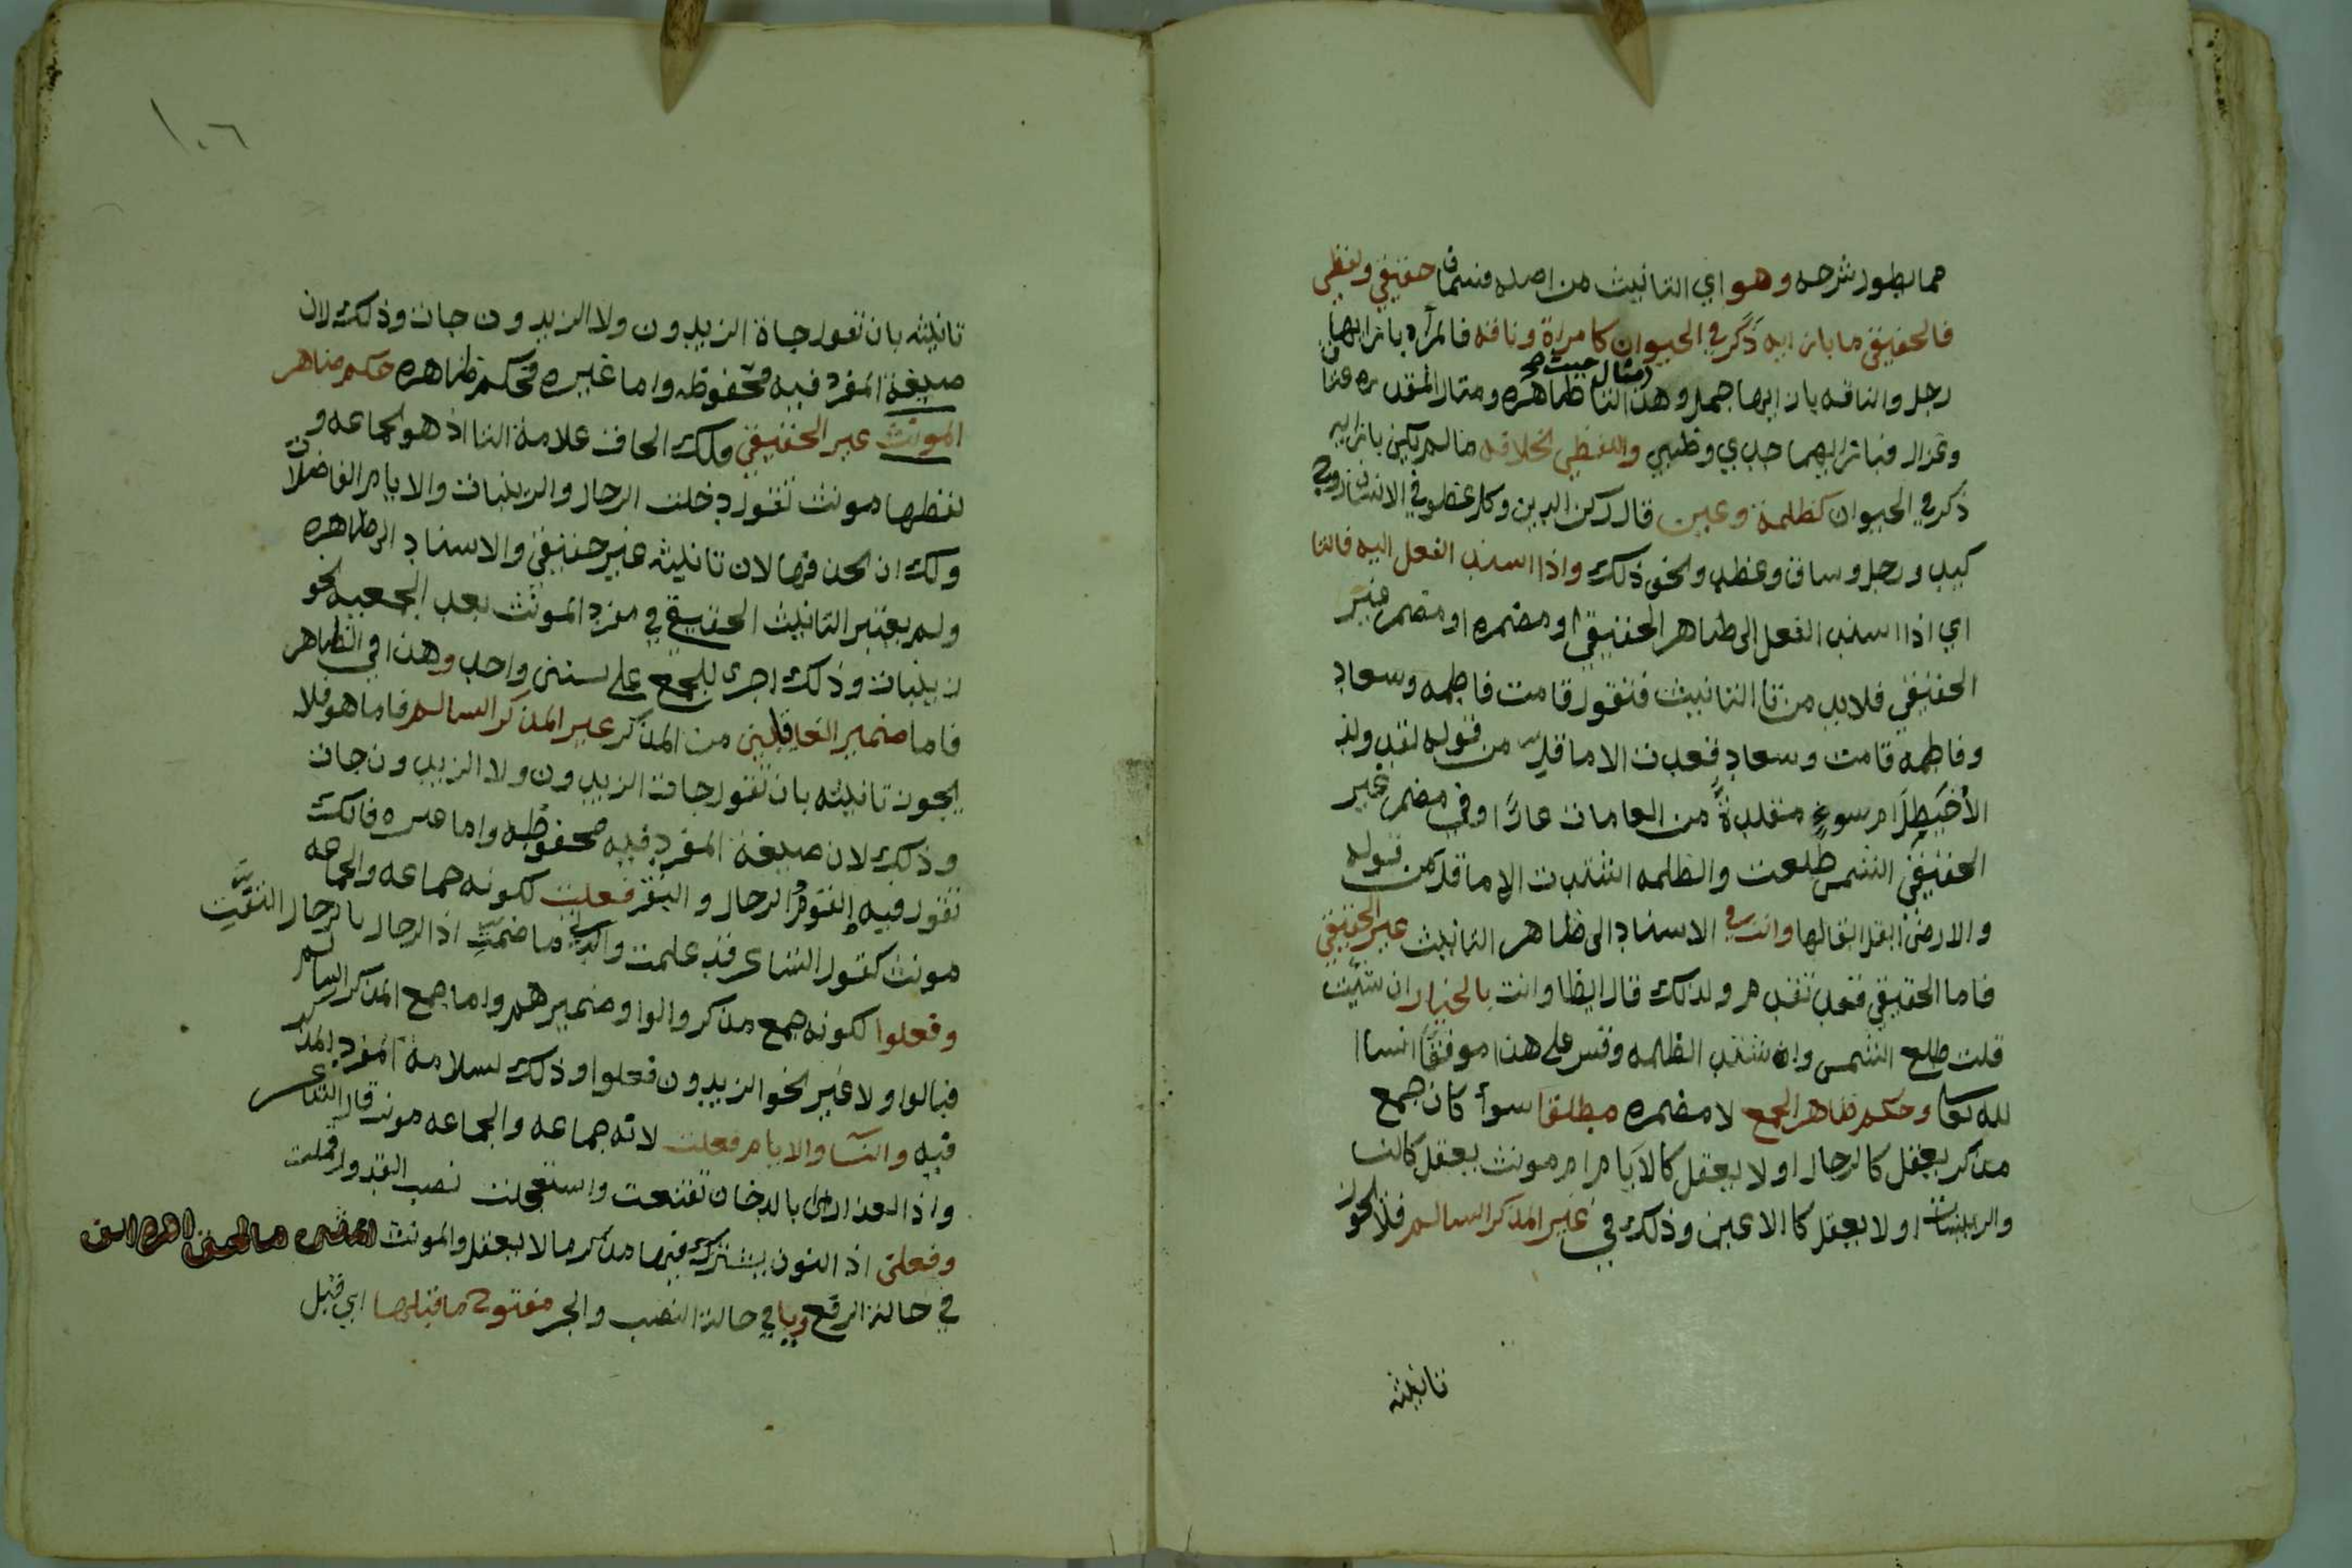 مما يطول شرحه وهو اي التانيث من اصله قسمان حقيقي ولفظي
فالحقيقي ما بازايه ذكر في الحيوان كامراة وناقه فالمرآه بازايها
رجل والناقه بازايها جمل وهذا مثال حيث التا ظاهرة ومثال المقدره عناق
وغزال فبازايهما جدي وظبي واللفظي بخلافه ما لم يكن بازايه
ذكر في الحيوان كظلمة وعين قال ركن الدين وكل عضو في الانسان زوج
كيد ورجل وساق وعظد ونحو ذلك واذا اسند الفعل اليه فالتا
اي اذا اسند الفعل الى ظاهر الحقيقي او مضمره او مضمر غير
الحقيقي فلابد من تا التانيث فتقول قامت فاطمه وسعاد
وفاطمه قامت وسعاد قعدت الا ما قل من قوله لقد ولد
الأخيطل ام سوءٍ مقلدةً من العامات عارًا وفي مضمر غير
الحقيقي الشمس طلعت والظلمه اشتدت الا ما قل من قوله
والارض ابقل ابقالها وانت في الاسناد الى ظاهر التانيث غير الحقيقي
فاما الحقيقي فقد تقدم ولذلك قال ايضا وانت بالخيار ان شيت
قلت طلع الشمس وان شتد الظلمه وقس على هذا موفقًا انشاا
لله تعا وحكم ظاهر الجمع لا مضمره مطلقا سوآ كان جمع
مذكر يعقل كالرجال او لا يعقل كالايام ام مونث يعقل كالنسا
والزينبات او لا يعقل كالاعين وذلك في غير المذكر السالم فلا يجوز
تانيثه
١٠٦
تانيثه بان تقول جاة الزيدون ولا الزيدون جات وذلك لان
صيغة المفرد فيه محفوظه واما غيره فحكم ظاهره حكم ظاهر
المونث غير الحقيقي فلك الحاق علامة التا اذ هو لجماعه و
لفظها مونث تقول دخلت الرجال والزينبات والايام الفاضلات
ولك ان تحذفها لان تانيثه غير حقيقي والاسناد الى ظاهره
ولم يعتبر التانيث الحقيقي في مفرد المونث بعد الجمعيه نحو
زينبات وذلك اجرى للجمع على سنن واحد وهذا في الظاهر
فاما ضمير العاقلين من المذكر غير المذكر السالم فاما هو فلا
يجوز تانيثه بان تقول جات الزيدون ولا الزيدون جات
وذلك لان صيغة المفرد فيه محفوظه واما غيره فالك
تقول فيه القوم والرجال والنفر فعلت لكونه جماعه والجماعه
مونث كقول الشاعر قد علمت والدتي ما ضمت اذا الرجال بالرجال التفت
وفعلوا لكونه جمع مذكر والواو ضميرهم واما جمع المذكر السالم
فبالواو لا غير نحو الزيدون فعلوا وذلك لسلامة المفرد المذكر
فيه والنسآ والايام فعلت لانه جماعه والجماعه مونث قال الشاعر
واذا العذارى بالدخان تقنعت واستعجلت نصب القدور فملت
وفعلن اذ النون يشترك فيها مذكر ما لا يعقل والمونث المثنى ما لحق اخره الف
في حالة الرفع ويا في حالة النصب والجر مفتوح ما قبلها اي قبل